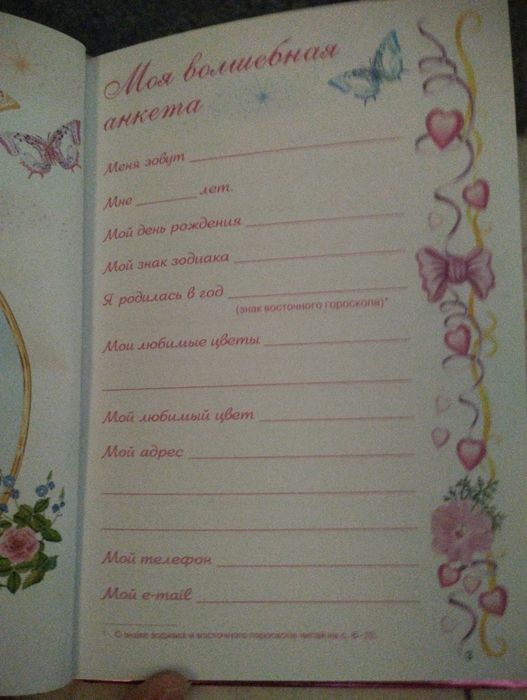 Моя волшебная
анкета
Меня зовут
Мне лет.
Мой день рождения
Мой знак зодиака
Я родилась в год
(знак восточного гороскопа)*
Мои любимые цветы
Мой любимый цвет
Мой адрес
Мой телефон
Мой e-mail
О знаке зодиака и восточного гороскопа читай на с.